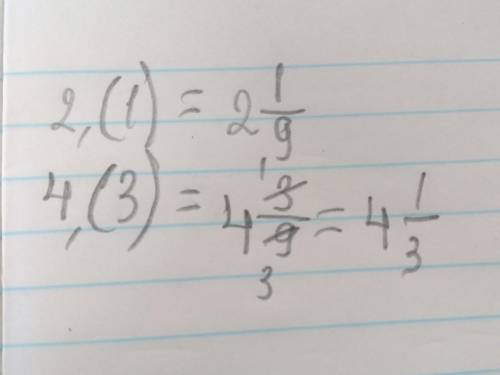 2,(1) = 2 1/9
4,(3) = 4 3/9 = 4 1/3